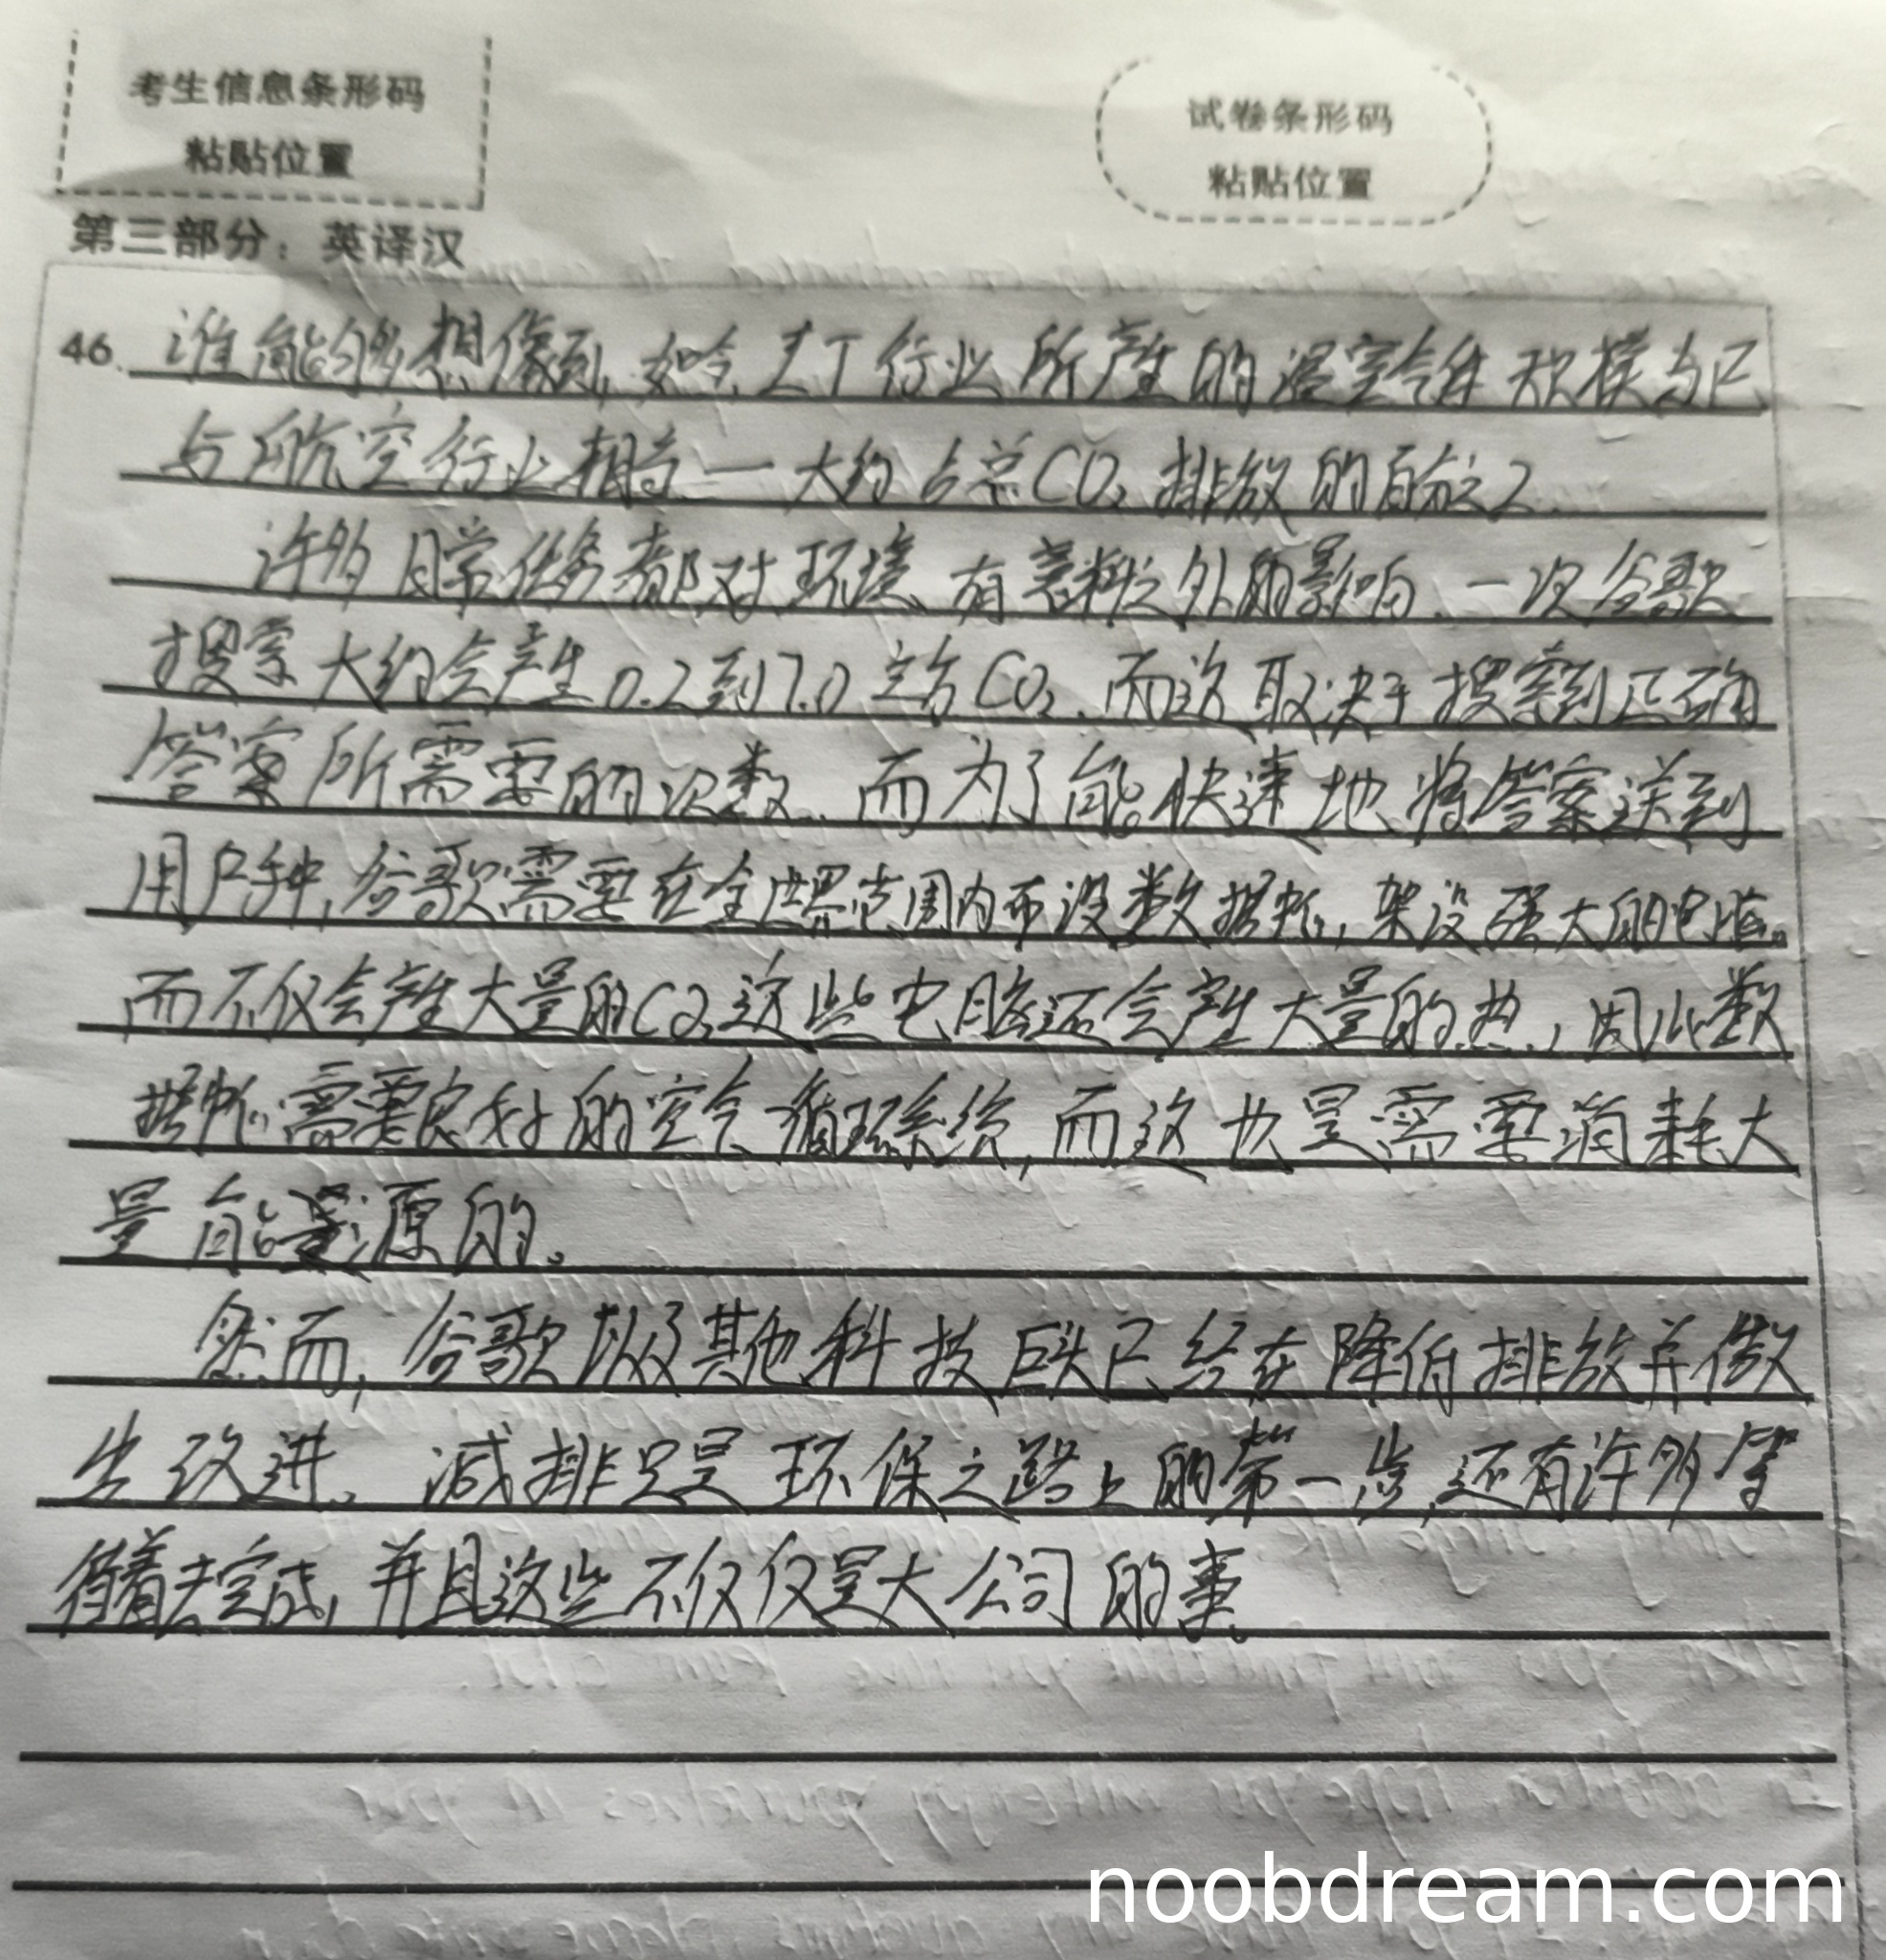 考生信息条形码
粘贴位置
试卷条形码
粘贴位置
第三部分：英译汉
46. 谁能够想像到,如今,IT行业所产生的温室气体规模与已
与航空行业相当一大约占总CO₂排放的百分之2.
许多日常任务都对环境有意料之外的影响.一次谷歌
搜索大约会产生0.2到7.0克CO₂,而这取决于搜索到正确
答案所需要的次数.而为了能快速地将答案送到
用户手中,谷歌需要在全世界范围内布设数据中心,架设强大的电脑。
而不仅会产生大量的CO₂,这些电脑还会产生大量的热,因此数
据中心需要良好的空气循环系统,而这也是需要消耗大
量能源的。
然而,谷歌以及其他科技巨头已经在降低排放并做
出改进。减排只是环保之路上的第一步,还有许多等
待着去完成,并且这些不仅仅是大公司的事。
noobdream.com